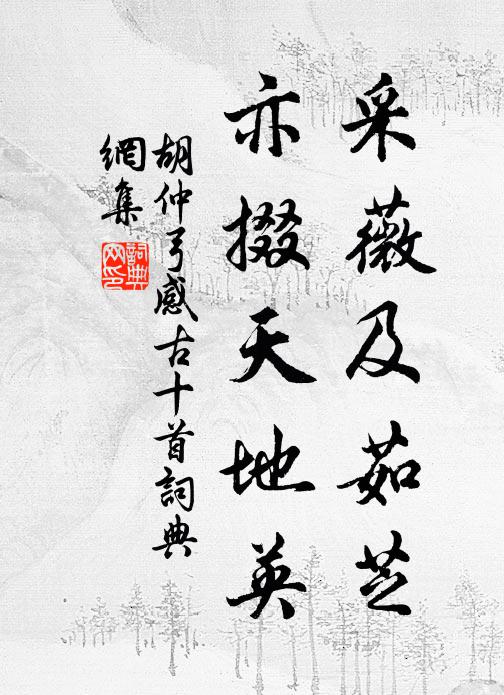 采薇及茹芝
亦掇天地英
胡仲弓感古十首詞典
網集
詞典
网印